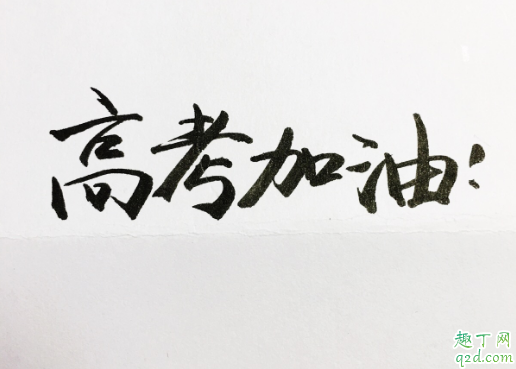 高考加油!
趣丁网
q2d.com